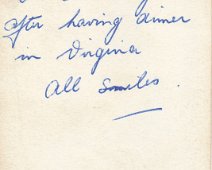 after having dinner
in Virginia
All smiles.